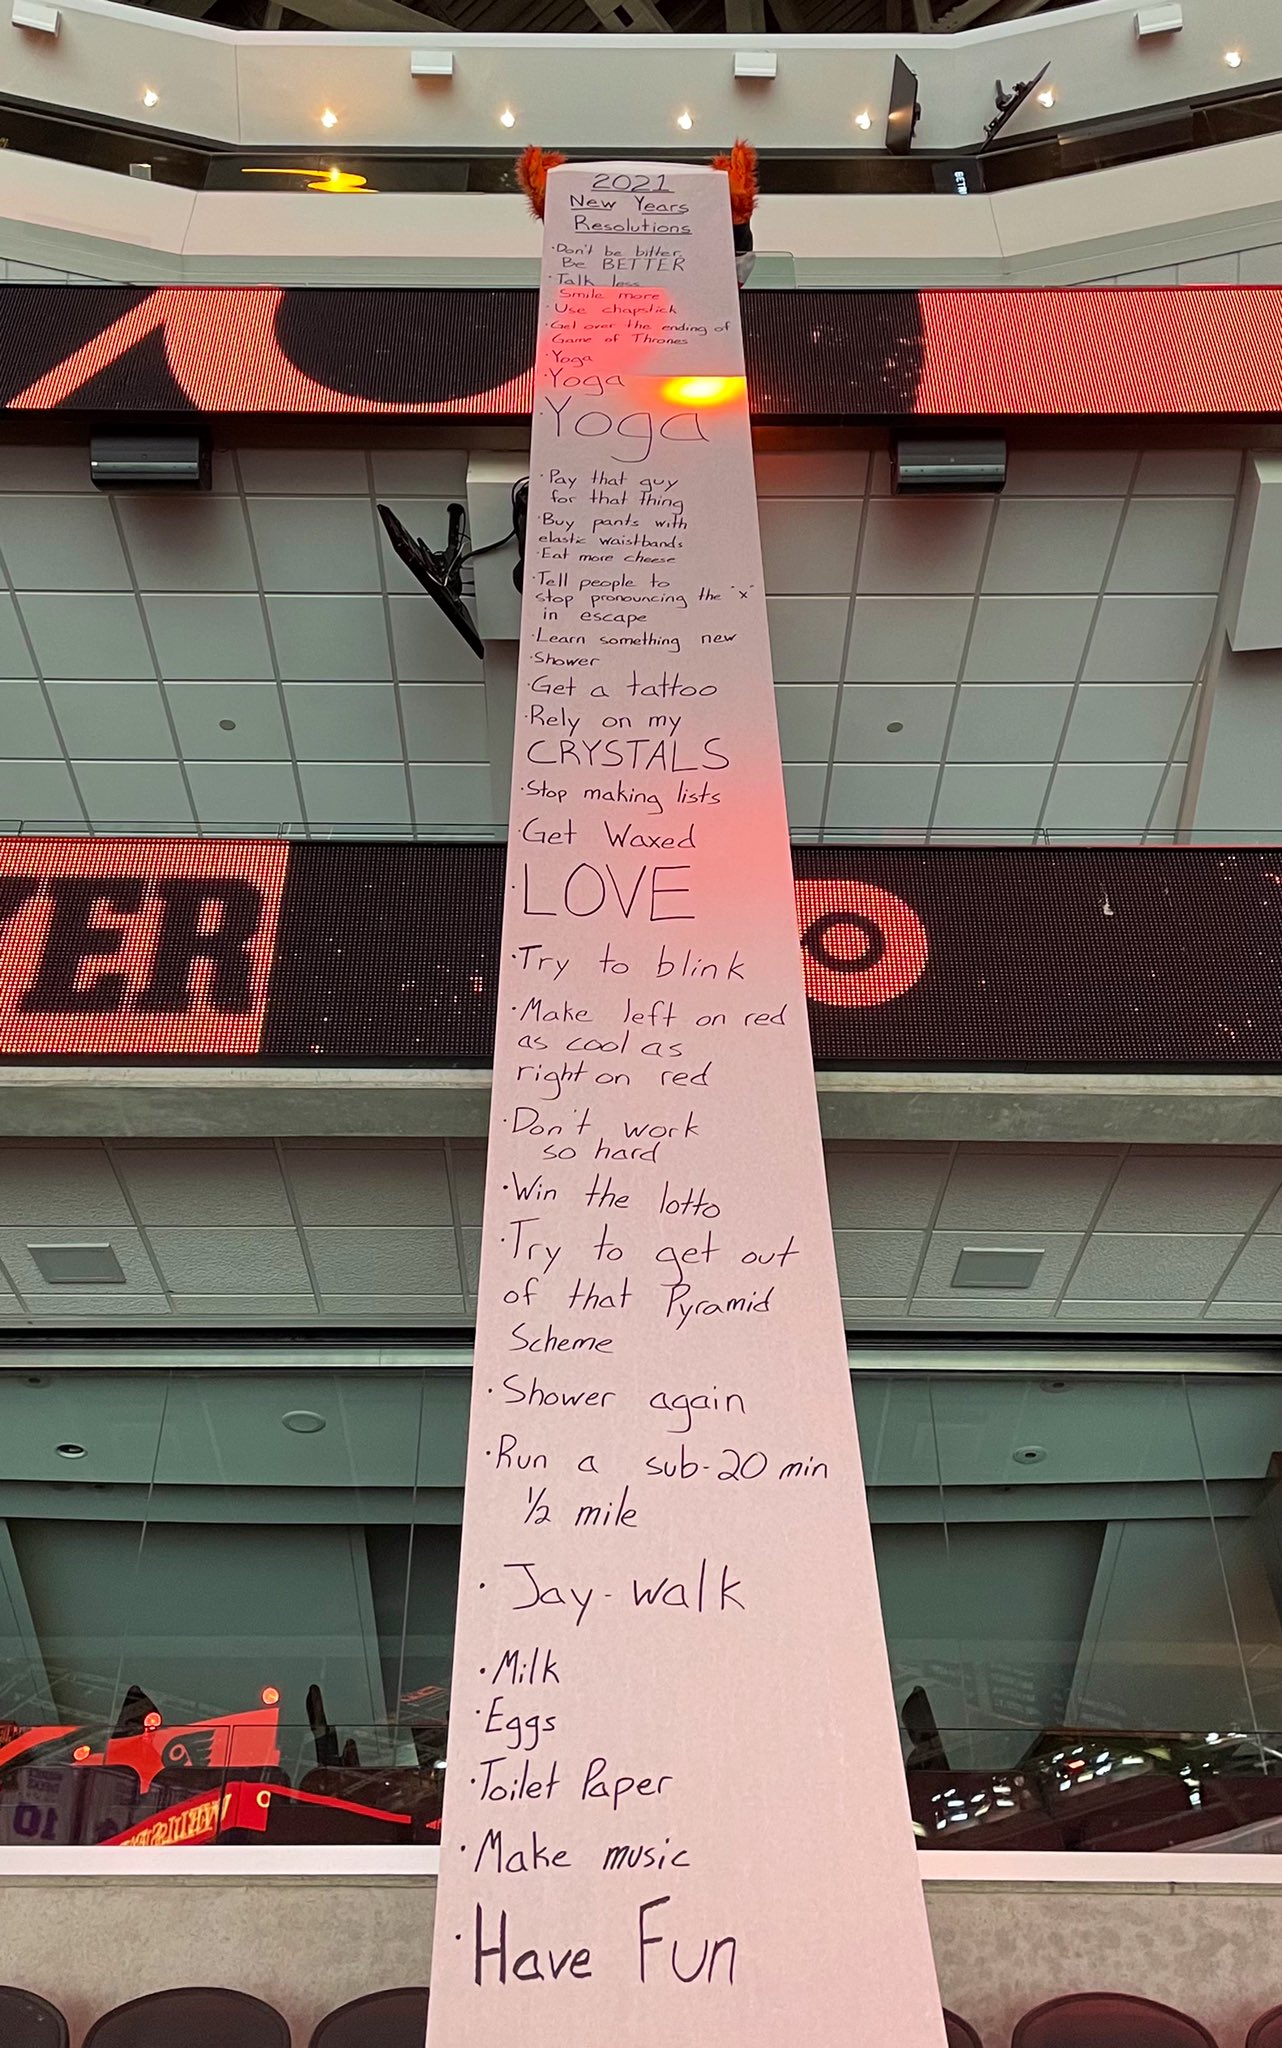 2021
New Years
Resolutions
·Don't be bitter
Be BETTER
·Talk less
Smile more
·Use chapstick
·Get over the ending of
Game of Thrones
·Yoga
·Yoga
·Yoga
·Pay that guy
for that thing
·Buy pants with
elastic waistbands
·Eat more cheese
·Tell people to
stop pronouncing the "x"
in escape
·Learn something new
·Shower
·Get a tattoo
·Rely on my
CRYSTALS
·Stop making lists
·Get Waxed
·LOVE
·Try to blink
·Make left on red
as cool as
right on red
·Don't work
so hard
·Win the lotto
·Try to get out
of that Pyramid
Scheme
·Shower again
·Run a sub-20 min
1/2 mile
·Jay-walk
·Milk
·Eggs
·Toilet Paper
·Make music
·Have Fun
YER
10